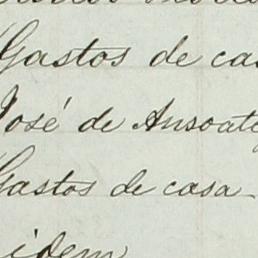 Gastos de ca
José de Ansoate
Gastos de casa
idem